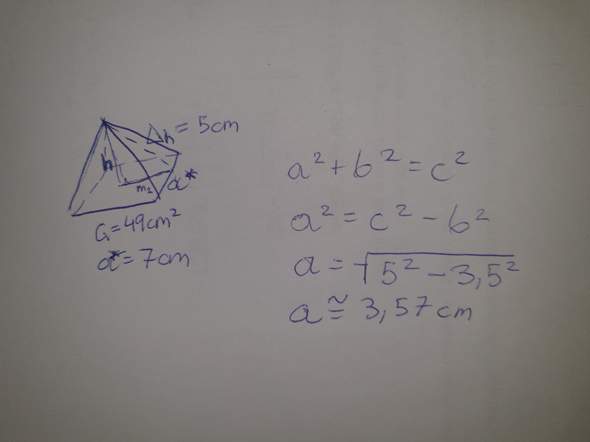 △h = 5cm
h
m₂
a*
G = 49cm²
a* = 7cm
a² + b² = c²
a² = c² - b²
a = √5² - 3,5²
a ≅ 3,57 cm